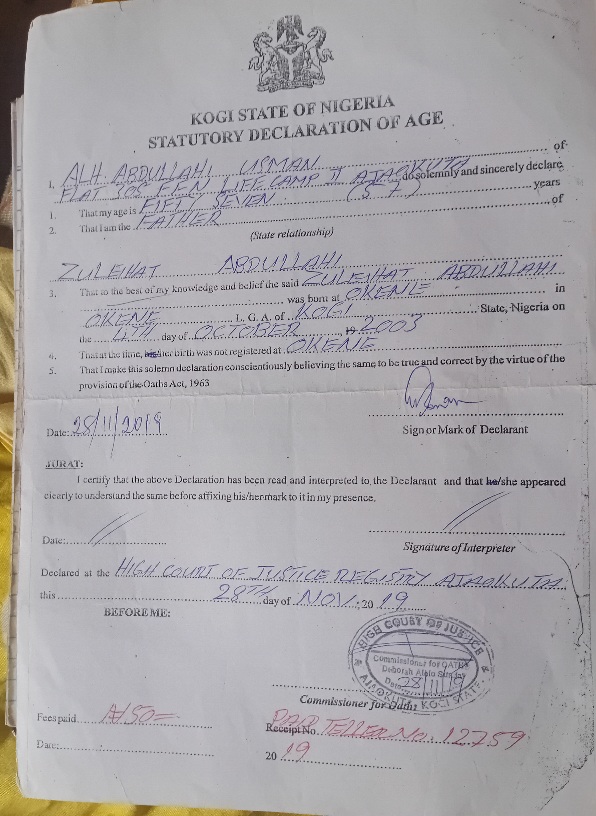 KOGI STATE OF NIGERIA
STATUTORY DECLARATION OF AGE
I, ALH. ABDULLAHI USMAN of
FLAT LIFE CAMP II AJAOKUTA do solemnly and sincerely declare
1. That my age is FIFTY SEVEN (57) years
2. That I am the FATHER of
(State relationship)
ZULEIHAT ABDULLAHI
3. That to the best of my knowledge and belief the said ZULEIHAT ABDULLAHI
was born at OKENE in
OKENE L.G.A. of KOGI State, Nigeria on
the 4TH day of OCTOBER 19 2003
4. That at the time, his/her birth was not registered at OKENE
5. That I make this solemn declaration conscientiously believing the same to be true and correct by the virtue of the
provision of the Oaths Act, 1963
Date: 28/11/2019
Sign or Mark of Declarant
JURAT:
I certify that the above Declaration has been read and interpreted to the Declarant and that he/she appeared
clearly to understand the same before affixing his/her mark to it in my presence.
Date:
Signature of Interpreter
Declared at the HIGH COURT OF JUSTICE REGISTRY AJAOKUTA
this 28TH day of NOV. 20 19
BEFORE ME:
HIGH COURT OF JUSTICE
Commissioner for OATHS
Deborah
Date 28/11/19
AJAOKUTA KOGI STATE
Commissioner for Oaths
Fees paid ₦150=
Receipt No. TELLER NO. 12759
Date:
20 19